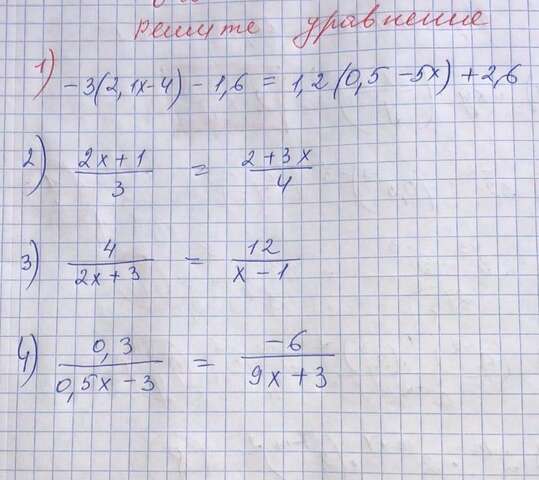 Решите уравнение
1) -3(2,1x-4) - 1,6 = 1,2(0,5 - 5x) + 2,6
2) (2x+1)/3 = (2+3x)/4
3) 4/(2x+3) = 12/(x-1)
4) 0,3/(0,5x-3) = -6/(9x+3)